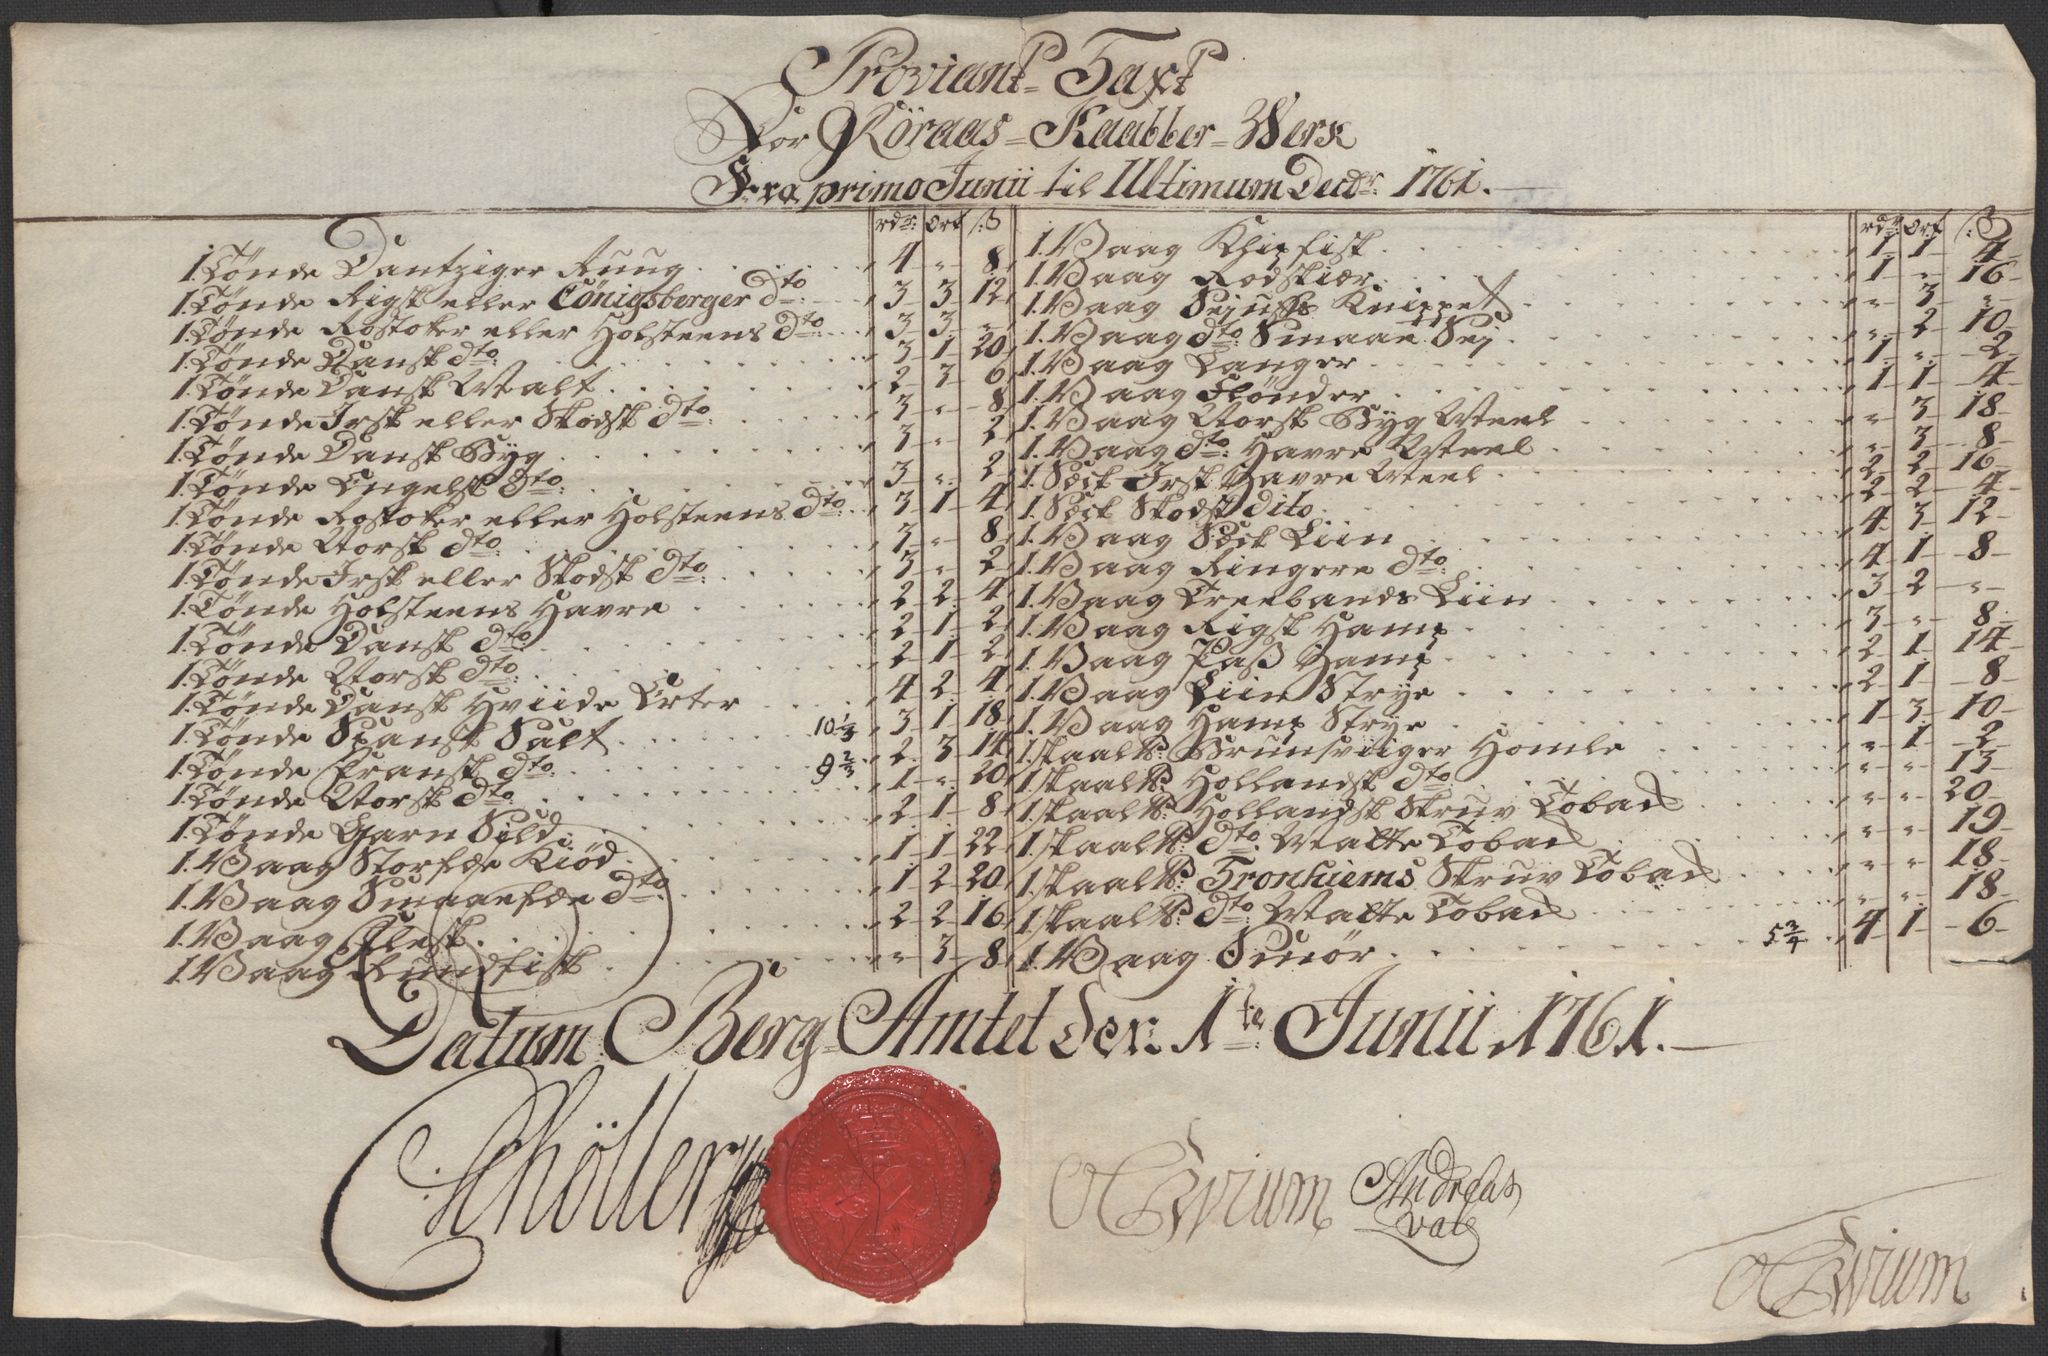 Proviant=Taxt
For Röraas=Kaabber=Werk
Fra primo Junii til Ultimum Decbr: 1761.
rdr: Ort s:ß
1. Tønde Dantziger Ruug 4 " 8
1. Tønde Rigsk eller Cönigsberger dto: 3 3 12
1. Tønde Rostoker eller Holsteens dto: 3 3 "
1. Tønde Dansk dto: 3 1 20
1. Tønde Dansk Malt 2 3 6
1. Tønde Irsk eller Skodsk dto: 3 " 8
1. Tønde Dansk Byg 3 " 2
1. Tønde Engelsk dto: 3 " 2
1. Tønde Rostoker eller Holsteens dto: 3 1 4
1. Tønde Norsk dto: 3 " 8
1. Tønde Irsk eller Skodsk dto: 3 " 2
1. Tønde Holsteens Havre 2 2 4
1. Tønde Dansk dto: 2 1 2
1. Tønde Norsk dto: 2 1 2
1. Tønde Dansk Hviide Erter 4 2 4
1. Tønde Spansk Salt 10 1/3 3 1 18
1. Tønde Fransk dto: 9 2/3 2 3 14
1. Tønde Norsk dto: 1 " 20
1. Tønde Garn Sild 2 1 8
1. Vaag Storfæe Kiöd 1 1 22
1. Vaag Smaaefæe dto: 1 2 20
1. Vaag Flesk 2 2 16
1. Vaag Rundfisk " 3 8
rdr: Ort s:ß
1. Vaag Klipfisk 1 1 4
1. Vaag Rodskiær 1 " 16
1. Vaag Sejufs Knippet " 3 "
1. Vaag dto: Smaae Sej " 2 10
1. Vaag Langer 1 " 2
1. Vaag Flønder 1 1 4
1. Vaag Norsk Byg Meel " 3 18
1. Vaag dto: Havre Meel " 3 8
1. Sæck Irsk Havre Meel 2 2 16
1. Sæck Skodsk dito 2 2 4
1. Vaag Sæck Liin 4 3 12
1. Vaag Ringere dto: 4 1 8
1. Vaag Treebands Liin 3 2 "
1. Vaag Rigsk Hamp 3 " 8
1. Vaag Paß Hamp 2 1 14
1. Vaag Liin Strye 2 1 8
1. Vaag Hamp Strye 1 3 10
1. skaal℔: Brunsviiger Homle " 1 2
1. skaal℔: Hollandsk dto: " " 13
1. skaal℔: Hollandsk Skruv Tobak " " 20
1. skaal℔: dto: Matte Tobak " " 19
1. skaal℔: Tronhiems Skruv Tobak " " 18
1. skaal℔: dto: Matte Tobak " " 18
1. Vaag Smör 5 3/4 4 1 6
Datum Berg=Amtet den 1te: Junii 1761.
Schöller
Irgens
Andreas